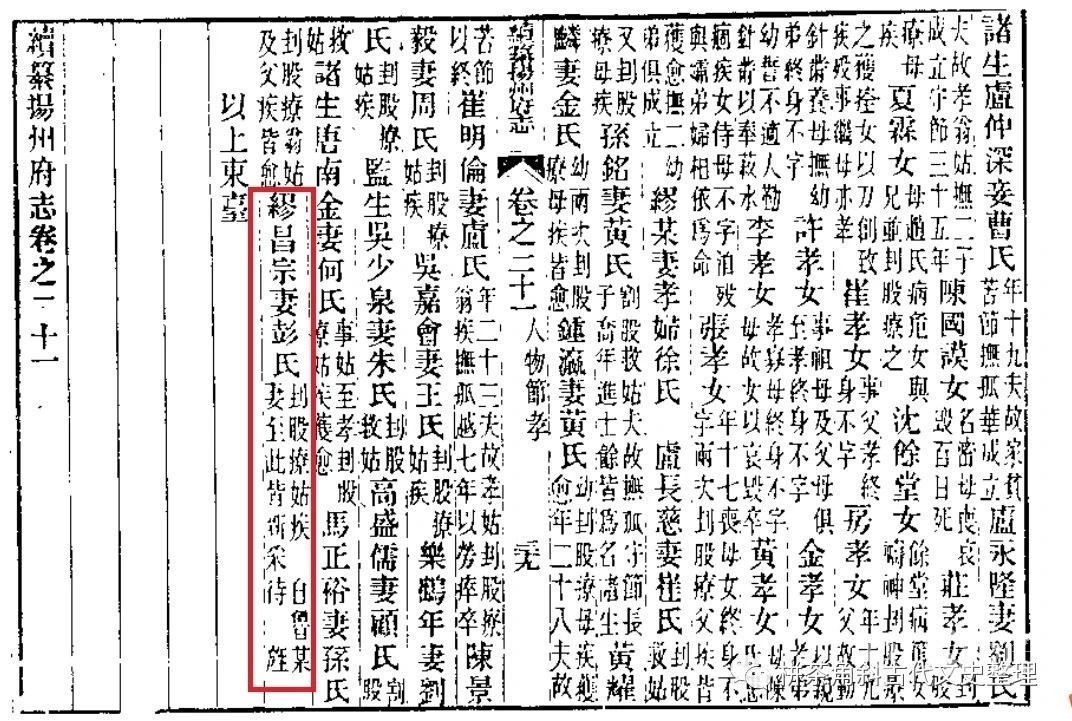 諸生盧仲深妾曹氏年十九夫故家貧苦節撫孤華成立盧永隆妻劉氏
夫故孝翁姑撫二子成立守節三十五年陳國謨女名密母喪哀毀百日死莊孝女
療母疾夏霖女母趙氏病危女與兄並刲股療之沈餘堂女餘堂病篤女禱神刲股
之獲痊女以刀創致疾歿事繼母亦孝崔孝女事父孝終身不字房孝女年十九父故勤
針黹養母撫幼弟終身不字許孝女事祖母及父母俱至孝終身不字金孝女以親弟
幼誓不適人勤針黹以奉菽水李孝女孝寡母終身不字母故女以哀毀卒黃孝女母陳氏患
痼疾女侍母不字洎歿與孀弟婦相依為命張孝女年十七喪母女終身不字兩次刲股療父疾皆
獲愈撫二幼弟俱成立繆某妻孝婦徐氏盧長慈妻崔氏刲股救姑
又刲股療母疾孫銘妻黃氏割股救姑夫故撫孤守節長子喬年進士餘皆爲名諸生黃耀
麟妻金氏幼兩次刲股療母疾皆愈鍾瀛妻黃氏幼刲股療母疾獲愈年二十八夫故
續纂揚州府志 卷之二十一 人物節孝 三九
苦節以終崔明倫妻盧氏年二十三夫故孝姑刲股療翁疾撫孤越七年以勞瘁卒陳景
毅妻周氏刲股療姑疾吳嘉會妻王氏刲股療姑疾樂鶴年妻劉
氏刲股療姑疾監生吳少泉妻朱氏刲股救姑高盛儒妻顧氏割股
救姑諸生唐南金妻何氏事姑至孝刲股療姑疾獲愈馬正裕妻孫氏
刲股療翁姑及父疾皆愈繆昌宗妻彭氏刲股療姑疾 自魯某妻至此皆新采待旌
以上東臺
續纂揚州府志卷之二十一